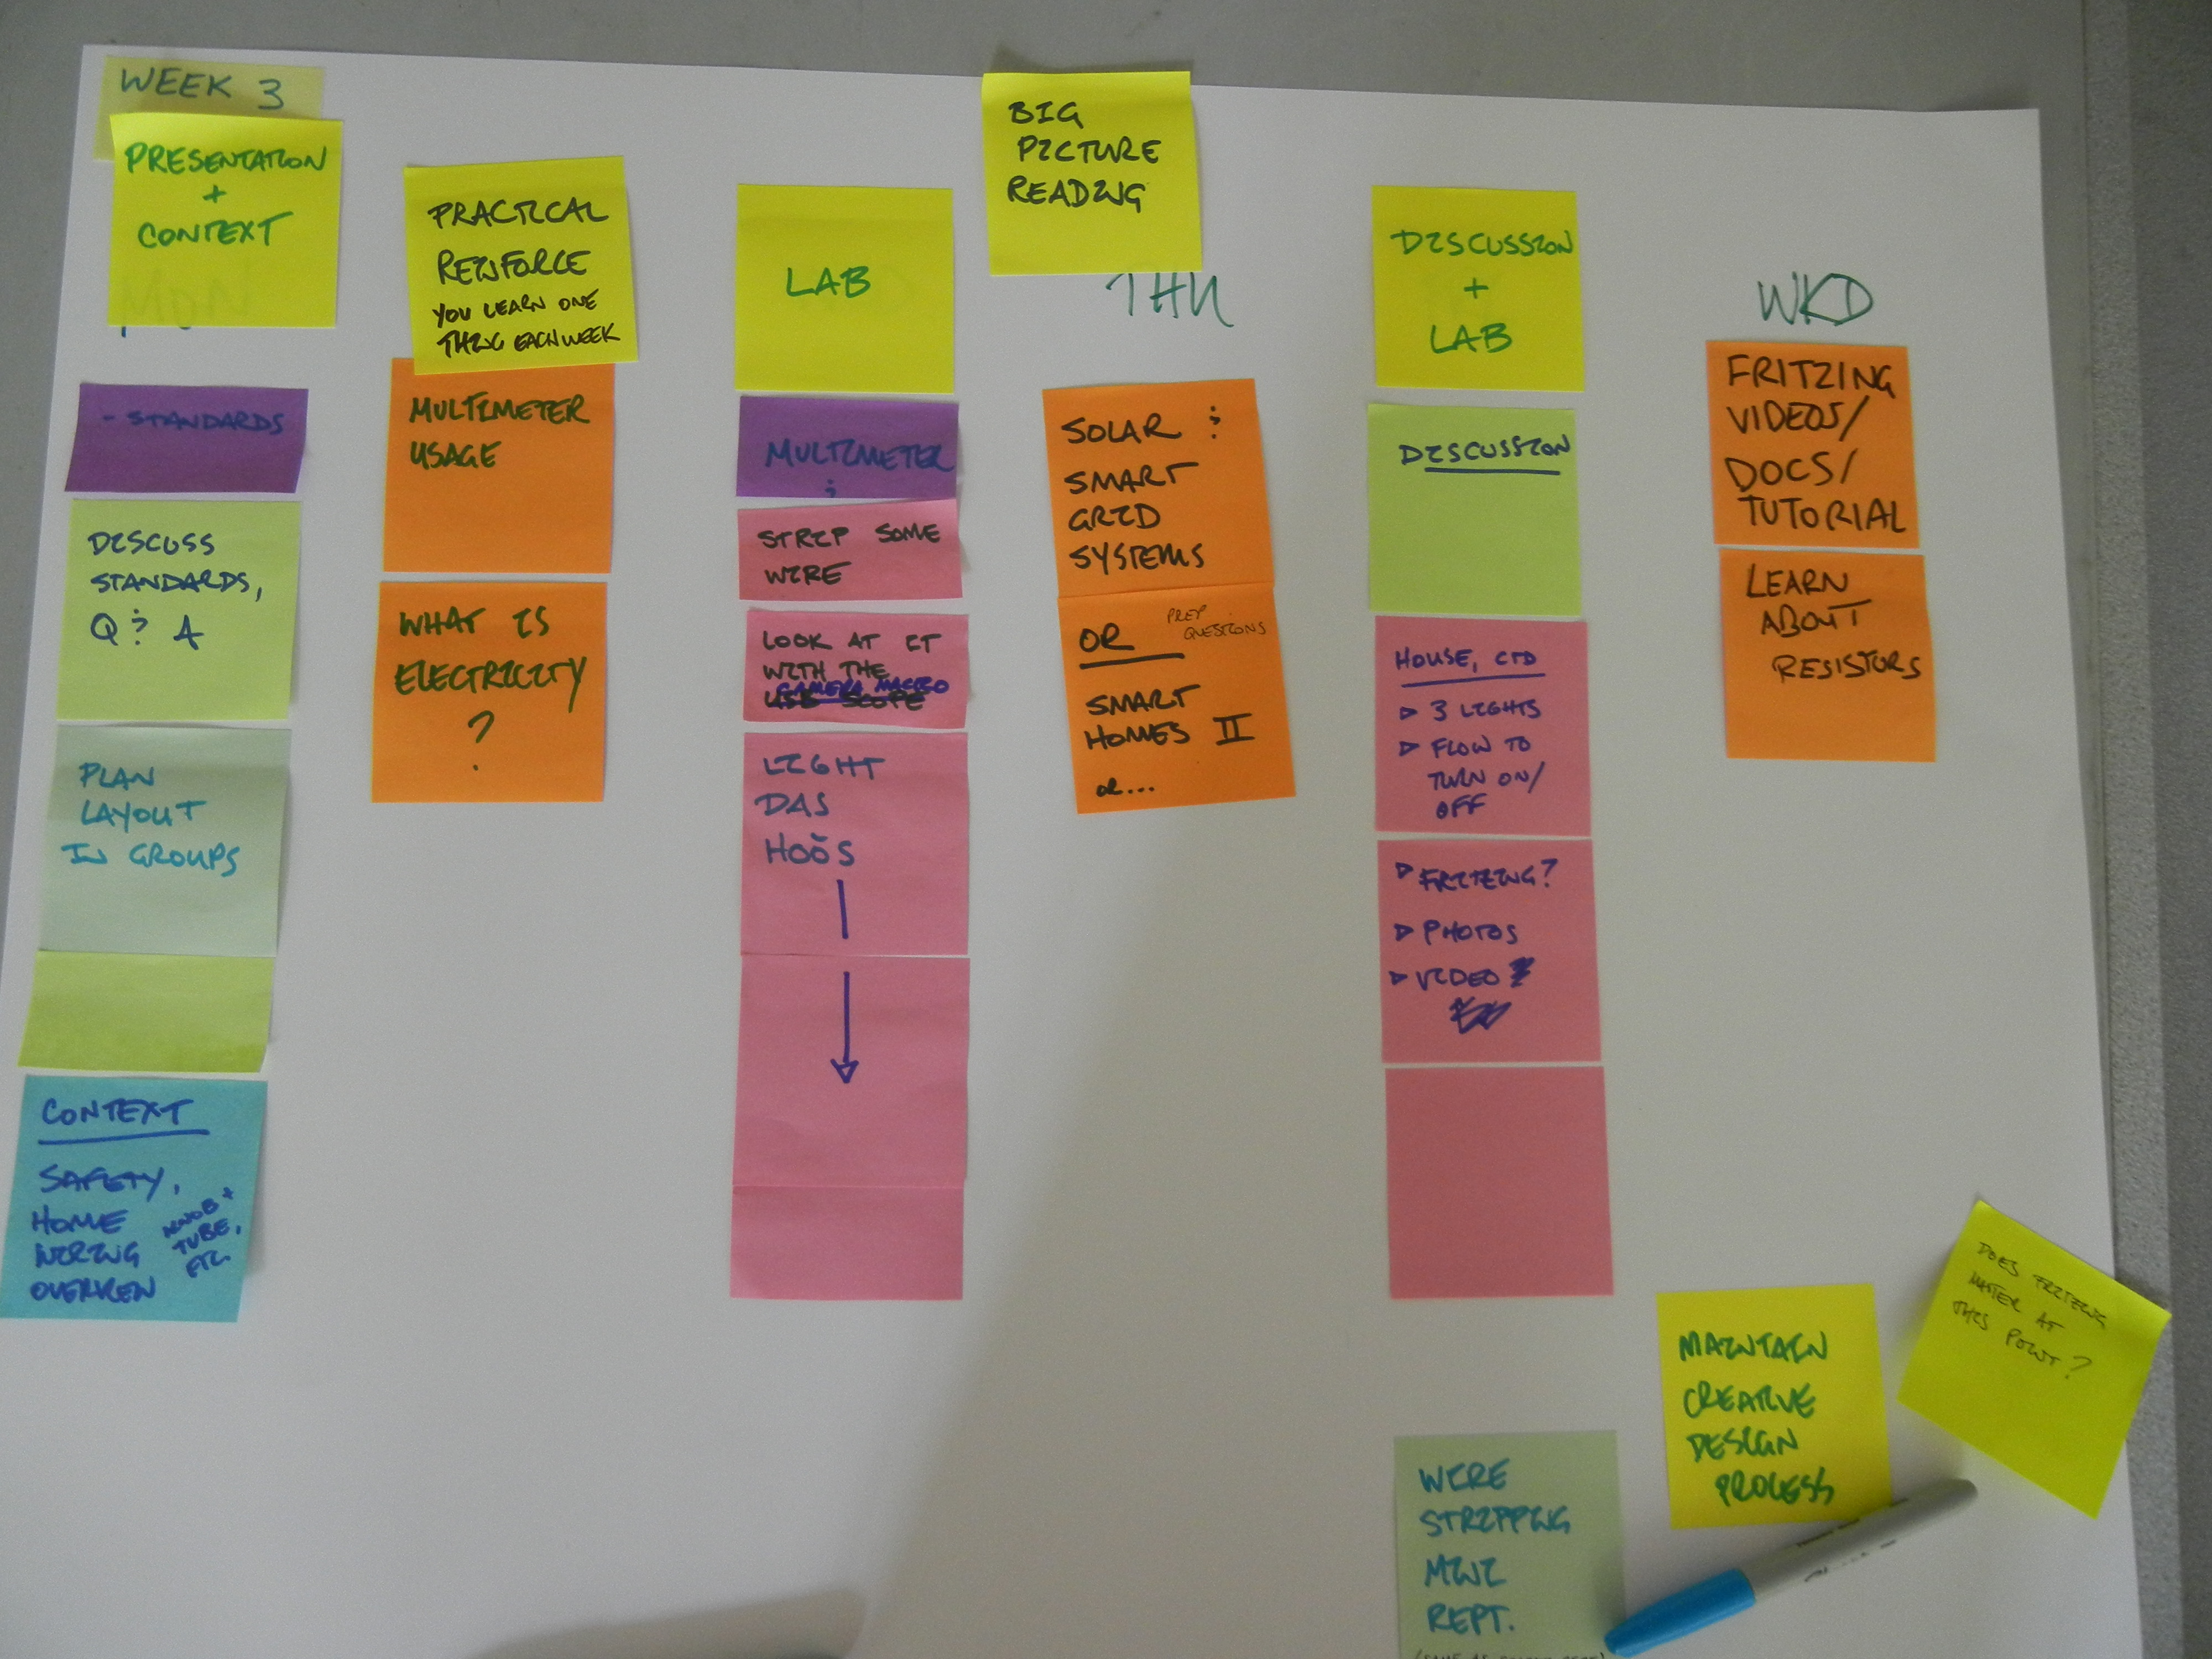 WEEK 3
PRESENTATION
+
CONTEXT
- STANDARDS
DISCUSS
STANDARDS,
Q & A
PLAN
LAYOUT
IN GROUPS
CONTEXT
SAFETY,
HOME
WIRING
OVERVIEW
KNOB +
TUBE,
ETC.
PRACTICAL
REINFORCE
YOU LEARN ONE
THING EACH WEEK
MULTIMETER
USAGE
WHAT IS
ELECTRICITY
?
LAB
MULTIMETER
&
STRIP SOME
WIRE
LOOK AT IT
WITH THE
CAMERA MACRO
USB SCOPE
LIGHT
DAS
HOŎS
BIG
PICTURE
READING
THU
SOLAR &
SMART
GRID
SYSTEMS
OR
PREP
QUESTIONS
SMART
HOMES II
OR...
DISCUSSION
+
LAB
DISCUSSION
HOUSE, CTD
▷ 3 LIGHTS
▷ FLOW TO
TURN ON/
OFF
▷ FRITZING?
▷ PHOTOS
▷ VIDEO
WIRE
STRIPPING
MINI
REPT.
WKD
FRITZING
VIDEOS/
DOCS/
TUTORIAL
LEARN
ABOUT
RESISTORS
MAINTAIN
CREATIVE
DESIGN
PROCESS
DOES FRITZING
MATTER AT
THIS POINT?